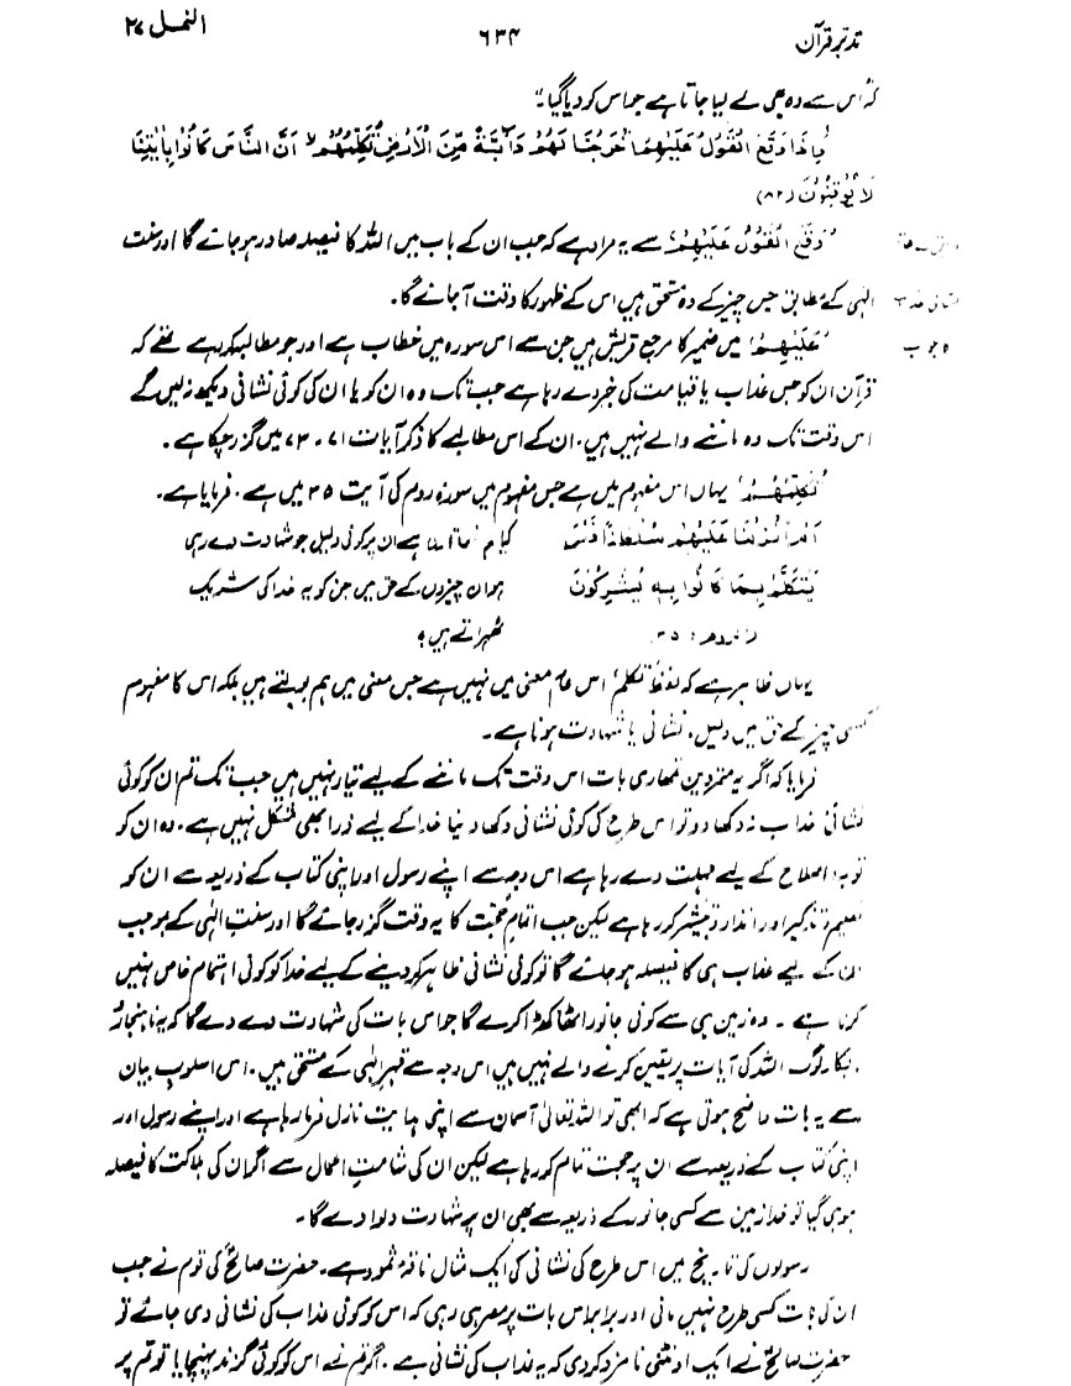 تدبّرِ قرآن ۶۳۴ النمل ۲۷
کہ اس سے وہ بھی لے لیا جاتا ہے جو اس کو دیا گیا۔"
وَإِذَا وَقَعَ الْقَوْلُ عَلَيْهِمْ أَخْرَجْنَا لَهُمْ دَآبَّةً مِّنَ الْأَرْضِ تُكَلِّمُهُمْ لا أَنَّ النَّاسَ كَانُوْا بِاٰيٰتِنَا
لَا يُوْقِنُوْنَ (۸۲)
'وَقَعَ الْقَوْلُ عَلَيْهِمْ' سے یہ مراد ہے کہ جب ان کے باب میں اللہ کا فیصلہ صادر ہو جائے گا اور سنت
الٰہی کے مطابق جس چیز کے وہ مستحق ہیں اس کے ظہور کا وقت آ جائے گا۔
'عَلَيْهِمْ' میں ضمیر کا مرجع قریش ہیں جن سے اس سورہ میں خطاب ہے اور جو مطالبہ کر رہے تھے کہ
قرآن ان کو جس عذاب یا قیامت کی خبر دے رہا ہے جب تک وہ ان کو یا ان کی کوئی نشانی دیکھ نہ لیں گے
اس وقت تک وہ ماننے والے نہیں ہیں۔ ان کے اس مطالبے کا ذکر آیات ۷۱۔۷۳ میں گزر چکا ہے۔
'تُكَلِّمُهُمْ' یہاں اس مفہوم میں ہے جس مفہوم میں سورۂ روم کی آیت ۳۵ میں ہے۔ فرمایا ہے۔
اَمْ اَنْزَلْنَا عَلَيْهِمْ سُلْطَانًا فَهُوَ کیا ہم نے اتاری ہے ان پر کوئی دلیل جو شہادت دے رہی
يَتَكَلَّمُ بِمَا كَانُوْا بِهٖ يُشْرِكُوْنَ ہو ان چیزوں کے حق میں جن کو یہ خدا کی شریک
(الروم: ۳۵) ٹھہراتے ہیں؟
یہاں ظاہر ہے کہ لفظ 'تکلم' اس عام معنی میں نہیں ہے جس معنی میں ہم بولتے ہیں بلکہ اس کا مفہوم
کسی چیز کے حق میں دلیل، نشانی یا شہادت ہونا ہے۔
فرمایا کہ اگر یہ متمردین تمھاری بات اس وقت تک ماننے کے لیے تیار نہیں ہیں جب تک تم ان کو کوئی
نشانیٔ عذاب نہ دکھا دو تو اس طرح کی کوئی نشانی دکھا دینا خدا کے لیے ذرا بھی مشکل نہیں ہے۔ وہ ان کو
توبہ و اصلاح کے لیے مہلت دے رہا ہے اس وجہ سے اپنے رسول اور اپنی کتاب کے ذریعہ سے ان کو
تعلیم و تذکیر اور انذار و تبشیر کر رہا ہے لیکن جب اتمامِ حجت کا یہ وقت گزر جائے گا اور سنتِ الٰہی کے بموجب
ان کے لیے عذاب ہی کا فیصلہ ہو جائے گا تو کوئی نشانی ظاہر کر دینے کے لیے خدا کو کوئی اہتمام خاص نہیں
کرنا ہے۔ وہ زمین ہی سے کوئی جانور اٹھا کھڑا کرے گا جو اس بات کی شہادت دے دے گا کہ یہ ناہنجار و
نابکار لوگ اللہ کی آیات پر یقین کرنے والے نہیں ہیں اس وجہ سے قہرِ الٰہی کے مستحق ہیں۔ اس اسلوبِ بیان
سے یہ بات واضح ہوتی ہے کہ ابھی تو اللہ تعالیٰ آسمان سے اپنی ہدایت نازل فرما رہا ہے اور اپنے رسول اور
اپنی کتاب کے ذریعہ سے ان پر حجت تمام کر رہا ہے لیکن ان کی شامتِ اعمال سے اگر ان کی ہلاکت کا فیصلہ
ہو ہی گیا تو خدا زمین سے کسی جانور کے ذریعہ سے بھی ان پر شہادت دلوا دے گا۔
رسولوں کی تاریخ میں اس طرح کی نشانی کی ایک مثال ناقۂ ثمود ہے۔ حضرت صالحؑ کی قوم نے جب
ان کی بات کسی طرح نہیں مانی اور برابر اس بات پر مصر ہی رہی کہ اس کو کوئی عذاب کی نشانی دی جائے تو
حضرت صالحؑ نے ایک اونٹنی نامزد کر دی کہ یہ عذاب کی نشانی ہے۔ اگر تم نے اس کو کوئی گزند پہنچایا تو تم پر